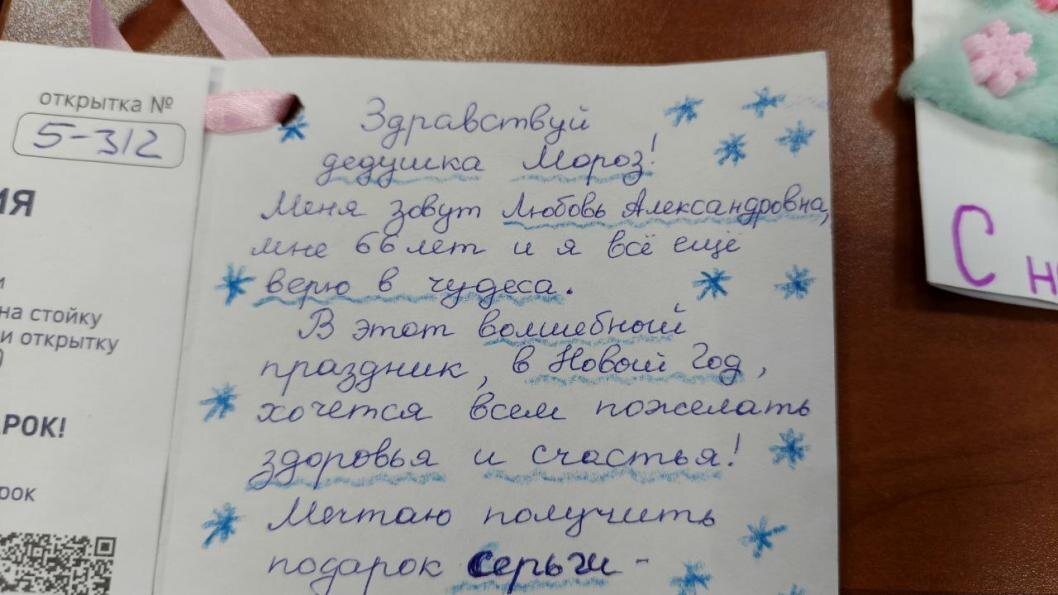 открытка №
5-312
ИЯ
и
на стойку
и открытку
)
РОК!
рок
Здравствуй
дедушка Мороз!
Меня зовут Любовь Александровна,
мне 66 лет и я всё ещё
верю в чудеса.
В этот волшебный
праздник, в Новый Год,
хочется всем пожелать
здоровья и счастья!
Мечтаю получить
подарок серьги -
С но